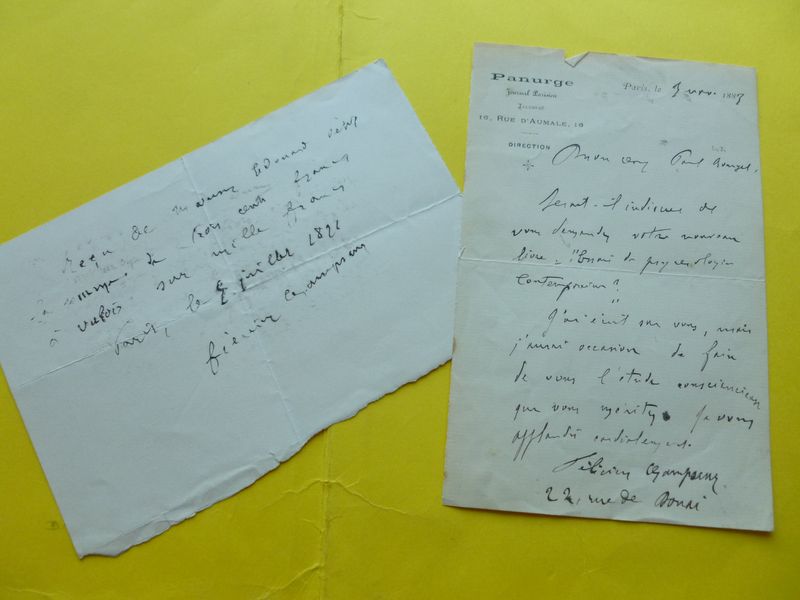 Reçu de Monsieur Edouard
la somme de trois cents francs
à valoir sur mille francs
Paris, le 5 juillet 1821
Félicien Champsaur
Panurge
Journal Parisien
Illustré
16, RUE D'AUMALE, 16
DIRECTION
Paris, le 3 nov. 1883
Mon cher Paul Bourget,
Serait-il indiscret de
vous demander votre nouveau
livre, l'Essai de psychologie
contemporaine?
J'ai écrit sur vous, mais
j'aurai occasion de faire
de vous l'étude consciencieuse
que vous méritez. Je vous
applaudis cordialement.
Félicien Champsaur
22, rue de Douai